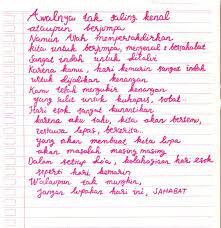 Awalnya tak saling kenal
ataupun berjumpa
Namun Allah mempertakdirkan
kita untuk berjumpa, mengenal & bersahabat
Sangat indah untuk dilalui
Karena kamu, hari kemarin sangat indah
untuk dijadikan kenangan
Kau telah mengukir kenangan
yang sulit untuk kuhapus, sobat
Hari esok sangat kunantikan
karena aku tahu, kita akan bersemi,
tertawa lepas, bercerita
yang akan membuat kita lupa
akan masalah masing masing
Dalam setiap do'a, kebahagiaan hari esok
seperti hari kemarin
Walaupun tak mungkin,
jangan lupakan hari ini, SAHABAT